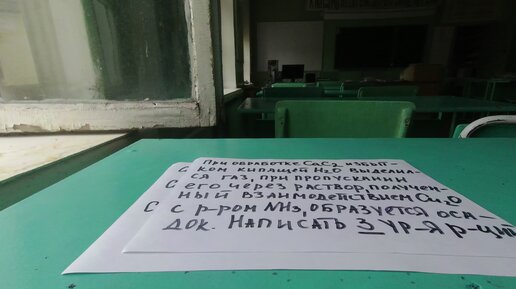 При обработке CaC2 избыт-
ком кипящей H2O выделил-
ся газ, при пропускании
его через раствор, получен-
ный взаимодействием Cu2O
с р-ром NH3, образуется оса-
док. Написать 3 ур-я р-ций